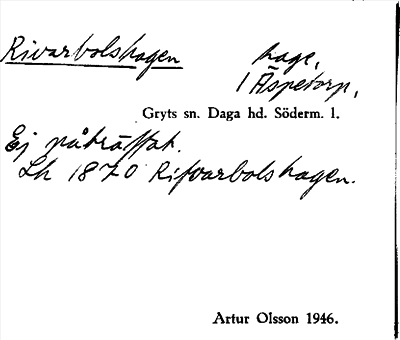 Rivarbolshagen hage,
i Äspetorp,
Gryts sn. Daga hd. Söderm. l.
Ej påträffat.
Lh 1870 Rifvarbolshagen.
Artur Olsson 1946.